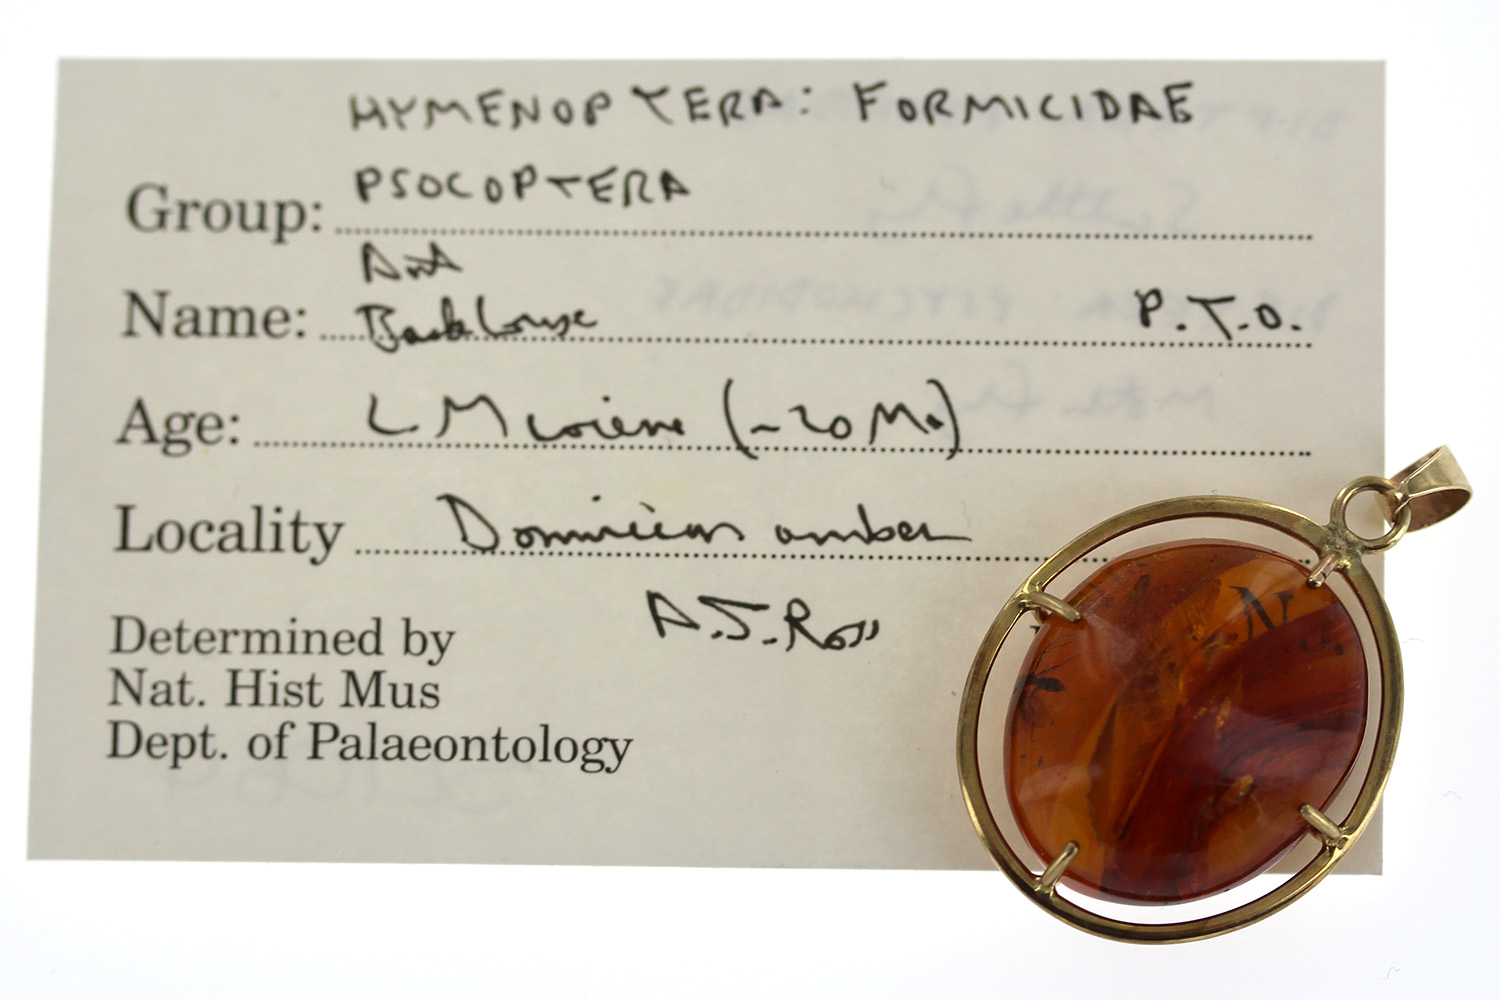 HYMENOPTERA: FORMICIDAE
Group: PSOCOPTERA
Ant
Name: Barklouse P.T.O.
Age: L Miocene (~20 Ma)
Locality Dominican amber
A.J. Ross
Determined by
Nat. Hist Mus
Dept. of Palaeontology